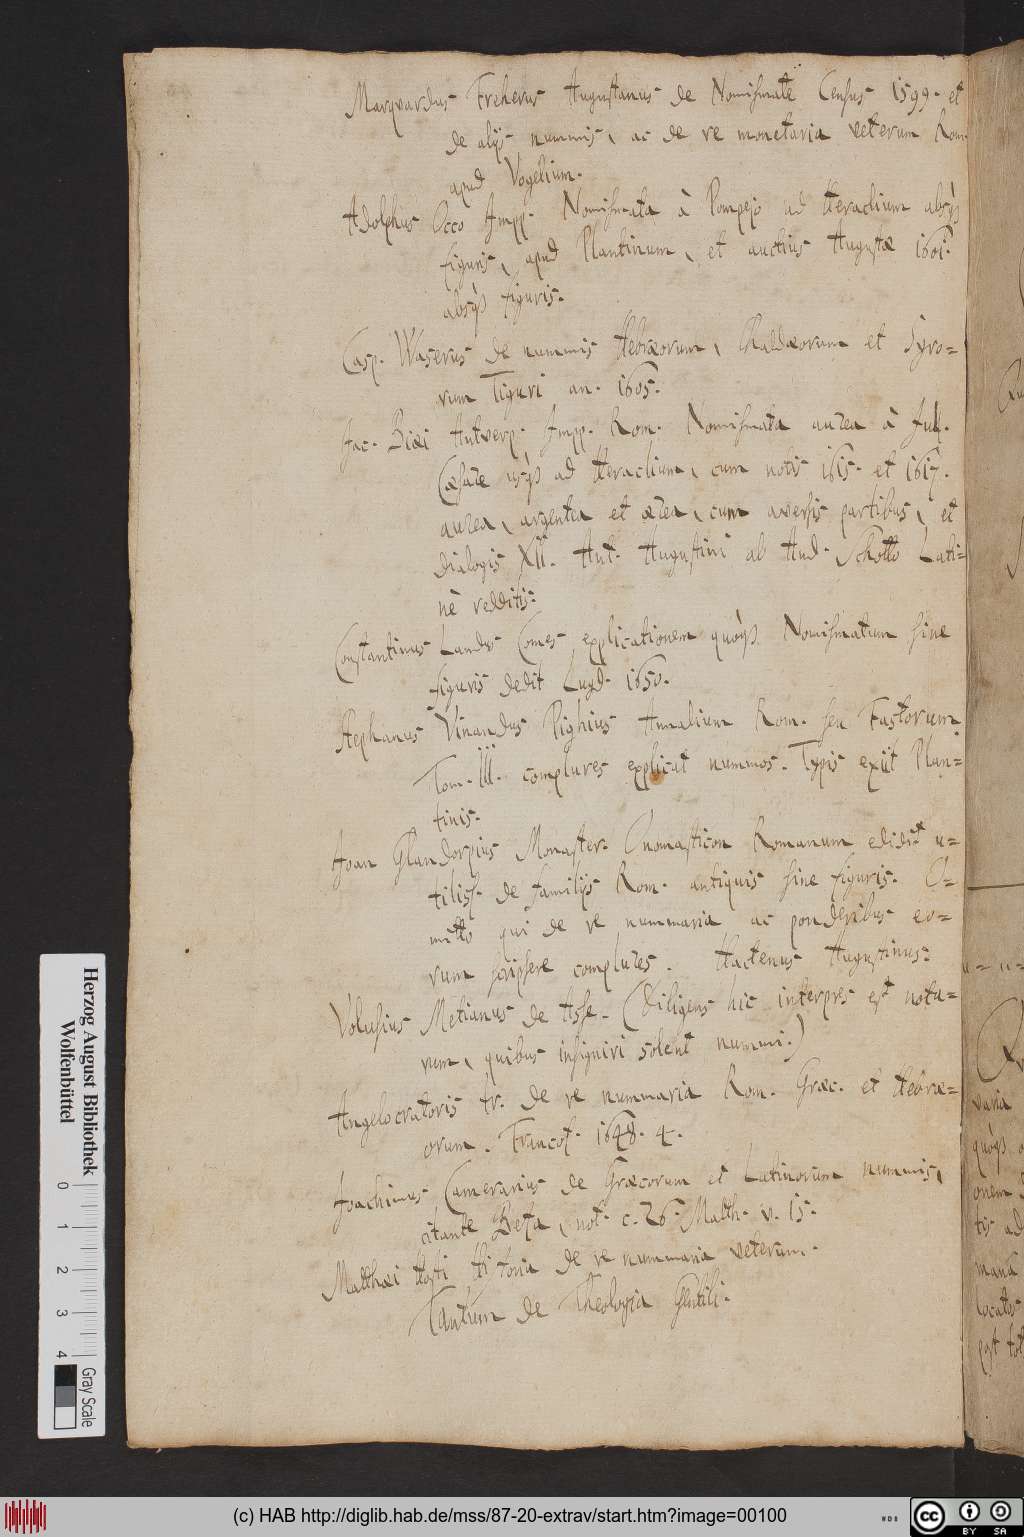 Marqvardus Freherus Augustanus de Nomismate Census 1599. et
de alijs nummis, ac de re monetaria veterum Rom.
apud Vogelium.
Adolphus Occo Impp. Nomismata à Pompejo ad Heraclium absqs
figuris, apud Plantinum, et auctius Augustæ 1601.
absqs figuris.
Casp. Waserus de nummis Hebræorum, Chaldæorum et Syro=
rum Tiguri an. 1605.
Jac. Biæi Antverp. Impp. Rom. Nomismata aurea à Jul.
Cæsare usqs ad Heraclium, cum notis 1615. et 1617.
aurea, argentea et ærea, cum aversis partibus, et
dialogis XII. Ant. Augustini ab And. Schotto Lati=
nè redditis.
Constantinus Landus Comes explicationem quoqs Nomismatum sine
figuris dedit Lugd. 1650.
Stephanus Vinandus Pighius Annalium Rom. seu Fastorum
Tom. III. complures explicat nummos. Typis exiit Plan=
tinis.
Joan Glandorpius Monaster. Onomasticon Romanum edidit u=
tiliss. de familijs Rom. antiquis sine figuris. O=
mitto qui de re nummaria ac ponderibus eo=
rum scripsere complures. Hactenus Augustinus.
Volusius Metianus de Asse. (diligens hic interpres est nota=
rum, quibus insigniri solent nummi.)
Angelocratoris tr. de re nummaria Rom. Græc. et Hebræ=
orum. Francof. 1648. 4.
Joachimus Camerarius de Græcorum et Latinorum nummis,
citante Beza, not. c. 26. Matth. v. 15.
Matthæi Hosti Historia de re nummaria veterum.
Tantum de Theologia Gentili.
Herzog August Bibliothek
Wolfenbüttel
0 1 2 3 4
Gray Scale
(c) HAB http://diglib.hab.de/mss/87-20-extrav/start.htm?image=00100
WDB
cc BY SA